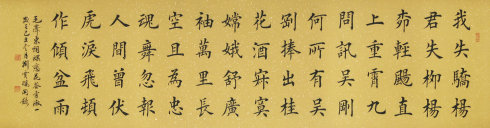 我失驕楊
君失柳楊
柳輕颺直
上重霄九
問訊吳剛
何所有吳
剛捧出桂
花酒寂寞
嫦娥舒廣
袖萬里長
空且為忠
魂舞忽報
人間曾伏
虎淚飛頓
作傾盆雨
毛澤東詞蝶戀花答李淑一